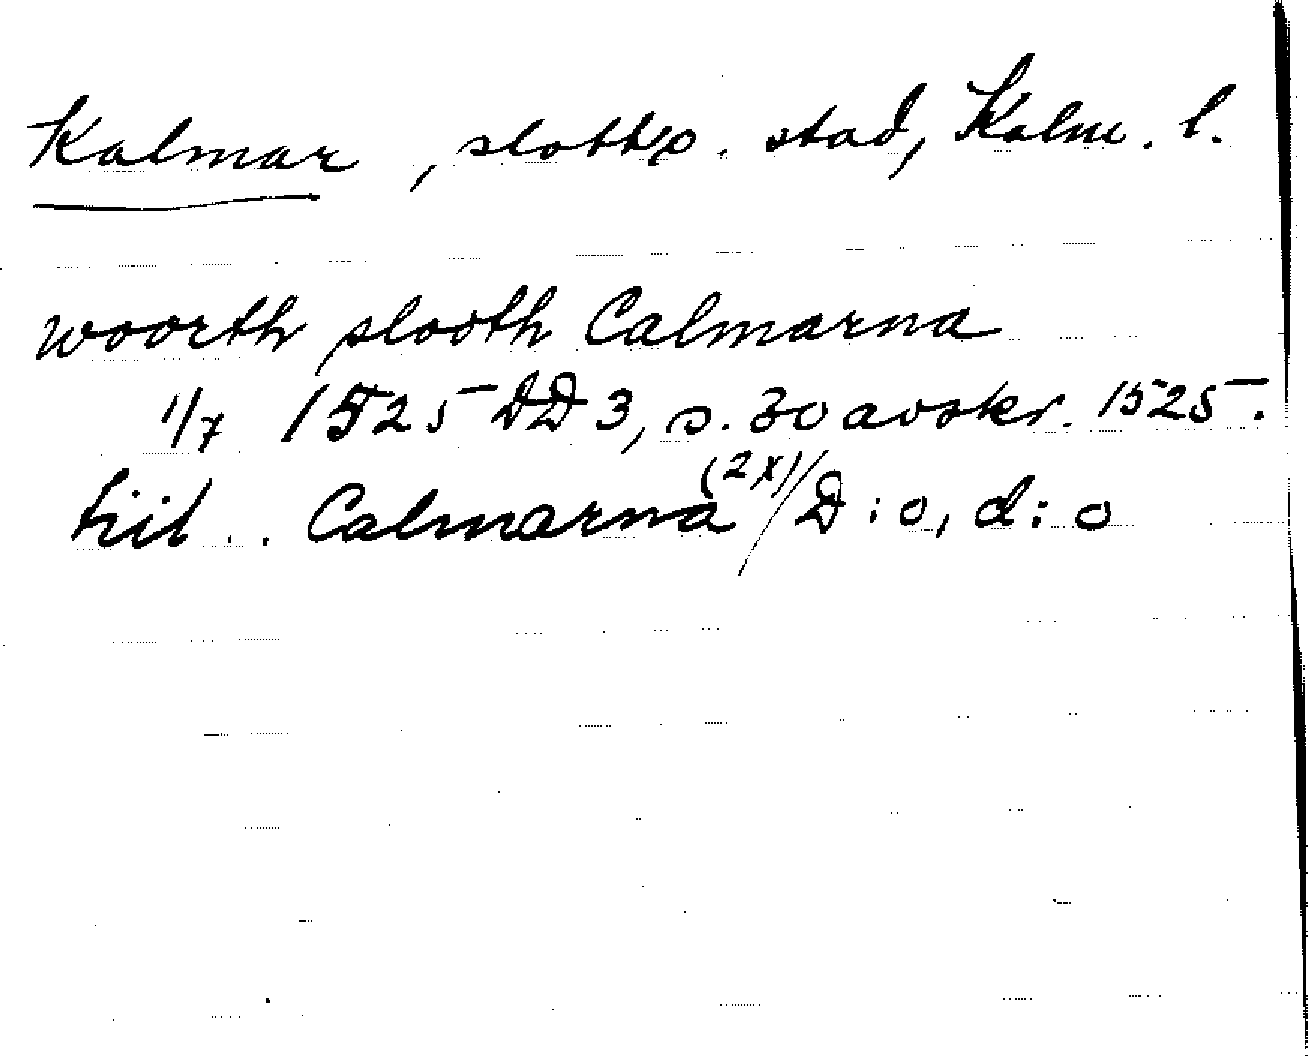 Kalmar, slott o. stad, Kalm. l.
woorth slooth Calmarna
1/7 1525 DD 3, s. 30 avskr. 1525.
tiil .. Calmarna (2x) / D:o, d:o